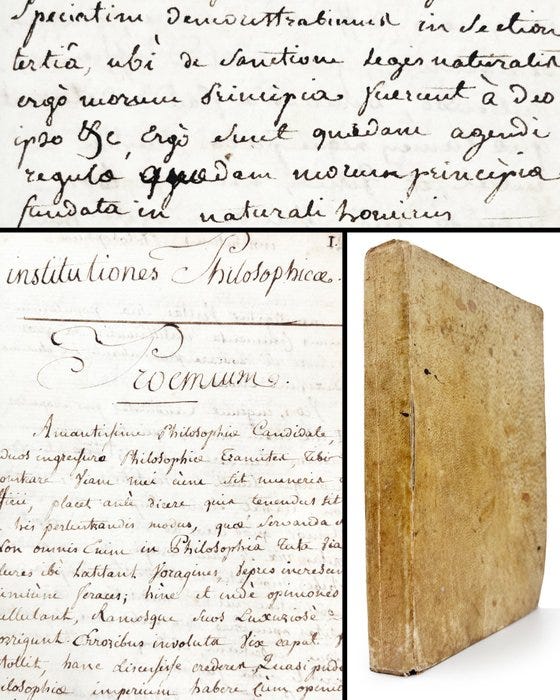 speciatim demonstrabimus in Section
tertiâ, ubi de Sanctione legis naturalis
ergò morum principia fuerunt à Deo
ipso &c, Ergò sunt quædam agendi
regulæ quædam morum principia
fundata in naturali hominis
1.
institutiones Philosophicæ.
Proemium.
Amantissime Philosophiæ Candidate,
ingressure Philosophiæ tramites, tibi
Viam mei cùm sit muneris
placet antè dicere quis tenendus sit
his perlustrandis modus, quæ servanda
Non omnis Enim in Philosophiâ tuta Via
ibi latitant Voragines, Vepres
feraces; hinc et inde opiniones
Ramosque suos Luxuriosè
Erroribus involuta Via caput
hanc discussisse crederet Quasi
imperium habere Cùm